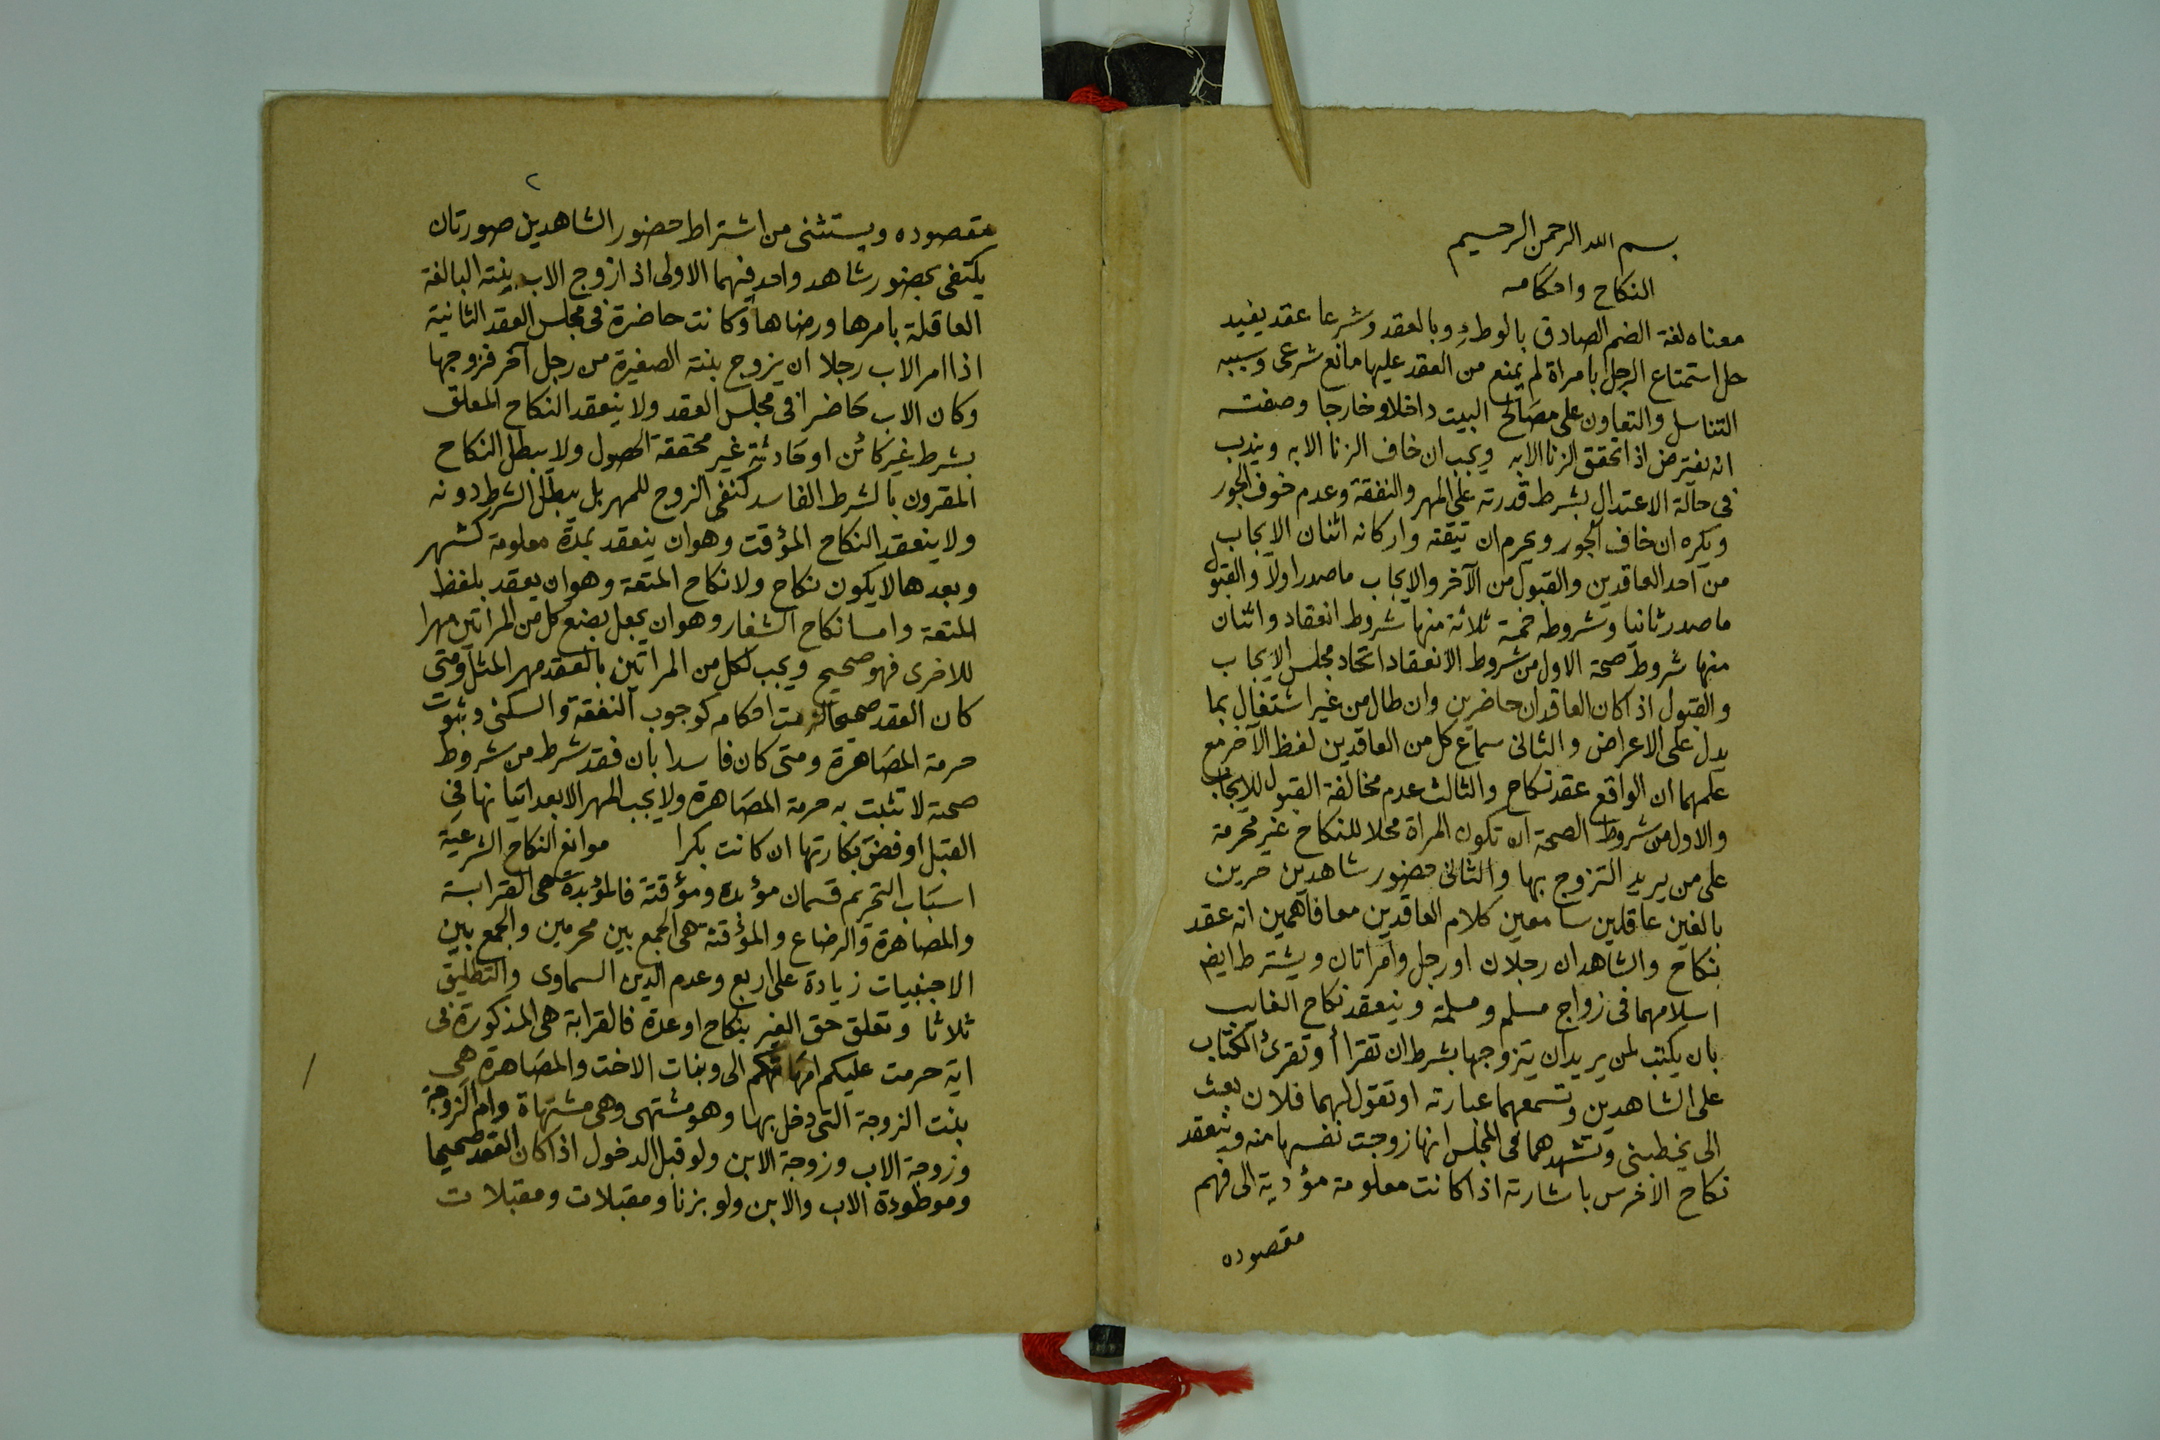 بسم الله الرحمن الرحيم
النكاح واحكامه
معناه لغة الضم الصادق بالوطئ وبالعقد وشرعا عقد يفيد
حل استمتاع الرجل بامراة لم يمنع من العقد عليها مانع شرعى وسببه
التناسل والتعاون على مصالح البيت داخلا وخارجا وصفته
انه يفترض اذا تحقق الزنا الابه ويجب ان خاف الزنا الابه ويندب
فى حالة الاعتدال بشرط قدرته على المهر والنفقة وعدم خوف الجور
ويكره ان خاف الجور ويحرم ان تيقنه واركانه اثنان الايجاب
من احد العاقدين والقبول من الآخر والايجاب ما صدر اولا والقبول
ما صدر ثانيا وشروطه خمسة ثلاثة منها شروط انعقاد واثنان
منها شروط صحة الاول من شروط الانعقاد اتحاد مجلس الايجاب
والقبول اذا كان العاقدان حاضرين وان طال من غير اشتغال بما
يدل على الاعراض والثانى سماع كل من العاقدين لفظ الآخر مع
علمهما ان الواقع عقد نكاح والثالث عدم مخالفة القبول للايجاب
والاول من شروط الصحة ان تكون المراة محلا للنكاح غير محرمة
على من يريد التزوج بها والثانى حضور شاهدين حرين
بالغين عاقلين سامعين كلام العاقدين معا فاهمين انه عقد
نكاح والشاهدان رجلان او رجل وامراتان ويشترط ايض
اسلامهما فى زواج مسلم ومسلمة وينعقد نكاح الغايب
بان يكتب لمن يريد ان يتزوجها بشرط ان تقرا أو تقرئ الكتاب
على الشاهدين وتسمعهما عبارته او تقول لهما فلان بعث
الى يخطبنى وتشهدهما فى المجلس انها زوجت نفسها منه وينعقد
نكاح الاخرس باشارته اذا كانت معلومة مؤدية الى فهم
مقصوده
٢
مقصوده ويستثنى من اشتراط حضور الشاهدين صورتان
يكتفى بحضور شاهد واحد فيهما الاولى اذا زوج الاب بنته البالغة
العاقلة بامرها ورضاها وكانت حاضرة فى مجلس العقد الثانية
اذا امر الاب رجلا ان يزوج بنته الصغيرة من رجل آخر فزوجها
وكان الاب حاضرا فى مجلس العقد ولا ينعقد النكاح المعلق
بشرط غير كائن او حادثة غير محققة الحصول ولا يبطل النكاح
المقرون بالشرط الفاسد كنفى الزوج للمهر بل يبطل الشرط دونه
ولا ينعقد النكاح المؤقت وهو ان ينعقد بمدة معلومة كشهر
وبعدها لا يكون نكاح ولا نكاح المتعة وهو ان يعقد بلفظ
المتعة واما نكاح الشغار وهو ان يجعل بضع كل من المراتين مهرا
للاخرى فهو صحيح ويجب لكل من المراتين بالعقد مهر المثل ومتى
كان العقد صحيحا لزمت احكامه كوجوب النفقة والسكنى وثبوت
حرمة المصاهرة ومتى كان فاسدا بان فقد شرط من شروط
صحته لا تثبت به حرمة المصاهرة ولا يجب المهر الا بعد اتيانها فى
القبل او فض بكارتها ان كانت بكرا موانع النكاح الشرعية
اسباب التحريم قسمان مؤبدة ومؤقتة فالمؤبدة هى القرابة
والمصاهرة والرضاع والمؤقتة هى الجمع بين محرمين والجمع بين
الاجنبيات زيادة على اربع وعدم الدين السماوى والتطليق
ثلاثا وتعلق حق الغير بنكاح او عدة فالقرابة هى المذكورة فى
اية حرمت عليكم امهاتكم الى وبنات الاخت والمصاهرة هى
بنت الزوجة التى دخل بها وهو مشتهى وهى مشتهاة وام الزوجة
وزوجة الاب وزوجة الابن ولو قبل الدخول اذا كان العقد صحيحا
وموطؤة الاب والابن ولو بزنا ومقبلات ومقبلات